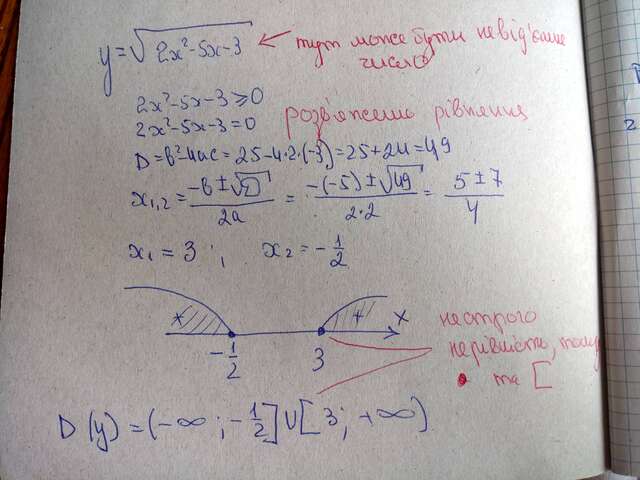 y=√2x²-5x-3 ← тут може бути невід'ємне
число
2x²-5x-3⩾0
2x²-5x-3=0 розв'яжемо рівняння
D=b²-4ac=25-4·2·(-3)=25+24=49
x₁,₂=(-b±√D)/2a = (-(-5)±√49)/2·2 = (5±7)/4
x₁=3; x₂=-1/2
+ + x
-1/2 3
нестрога
нерівність, тому
• та [
D(y)=(-∞; -1/2]∪[3; +∞)